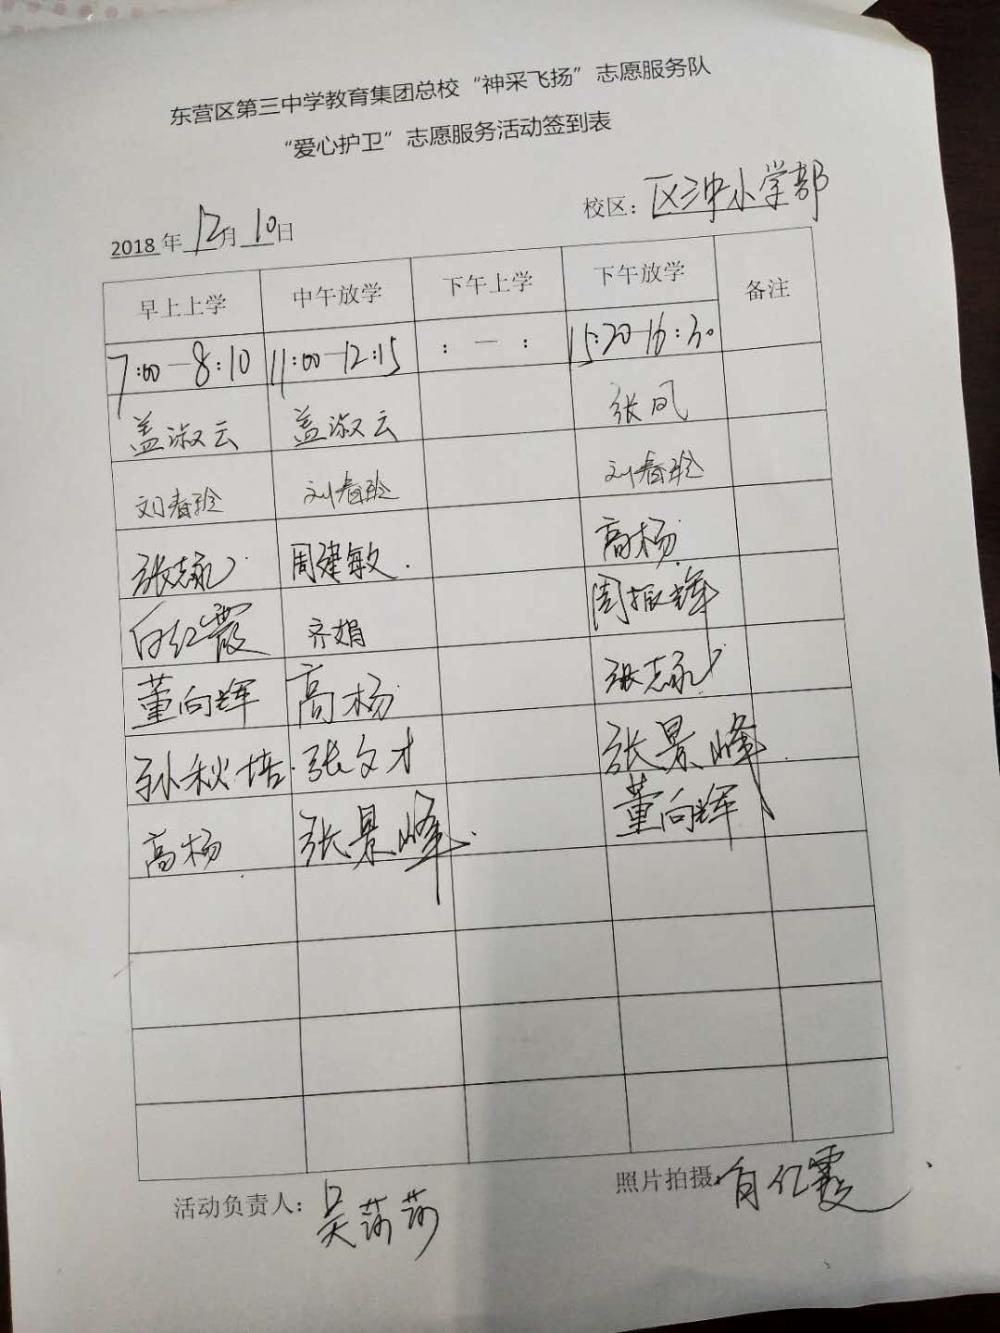 东营区第三中学教育集团总校“神采飞扬”志愿服务队
“爱心护卫”志愿服务活动签到表
2018年12月10日 校区：区三中小学部
早上上学 中午放学 下午上学 下午放学 备注
7:00—8:10 11:00—12:15 ：—： 15:20-16:30
盖淑云 盖淑云 张凤
刘春玲 刘春玲 刘春玲
张志永 周建敏 高杨
红霞 齐娟 周振辉
董向辉 高杨 张志永
孙秋培 张文才 张景峰
高杨 张景峰 董向辉
活动负责人：吴莎莎 照片拍摄：红霞